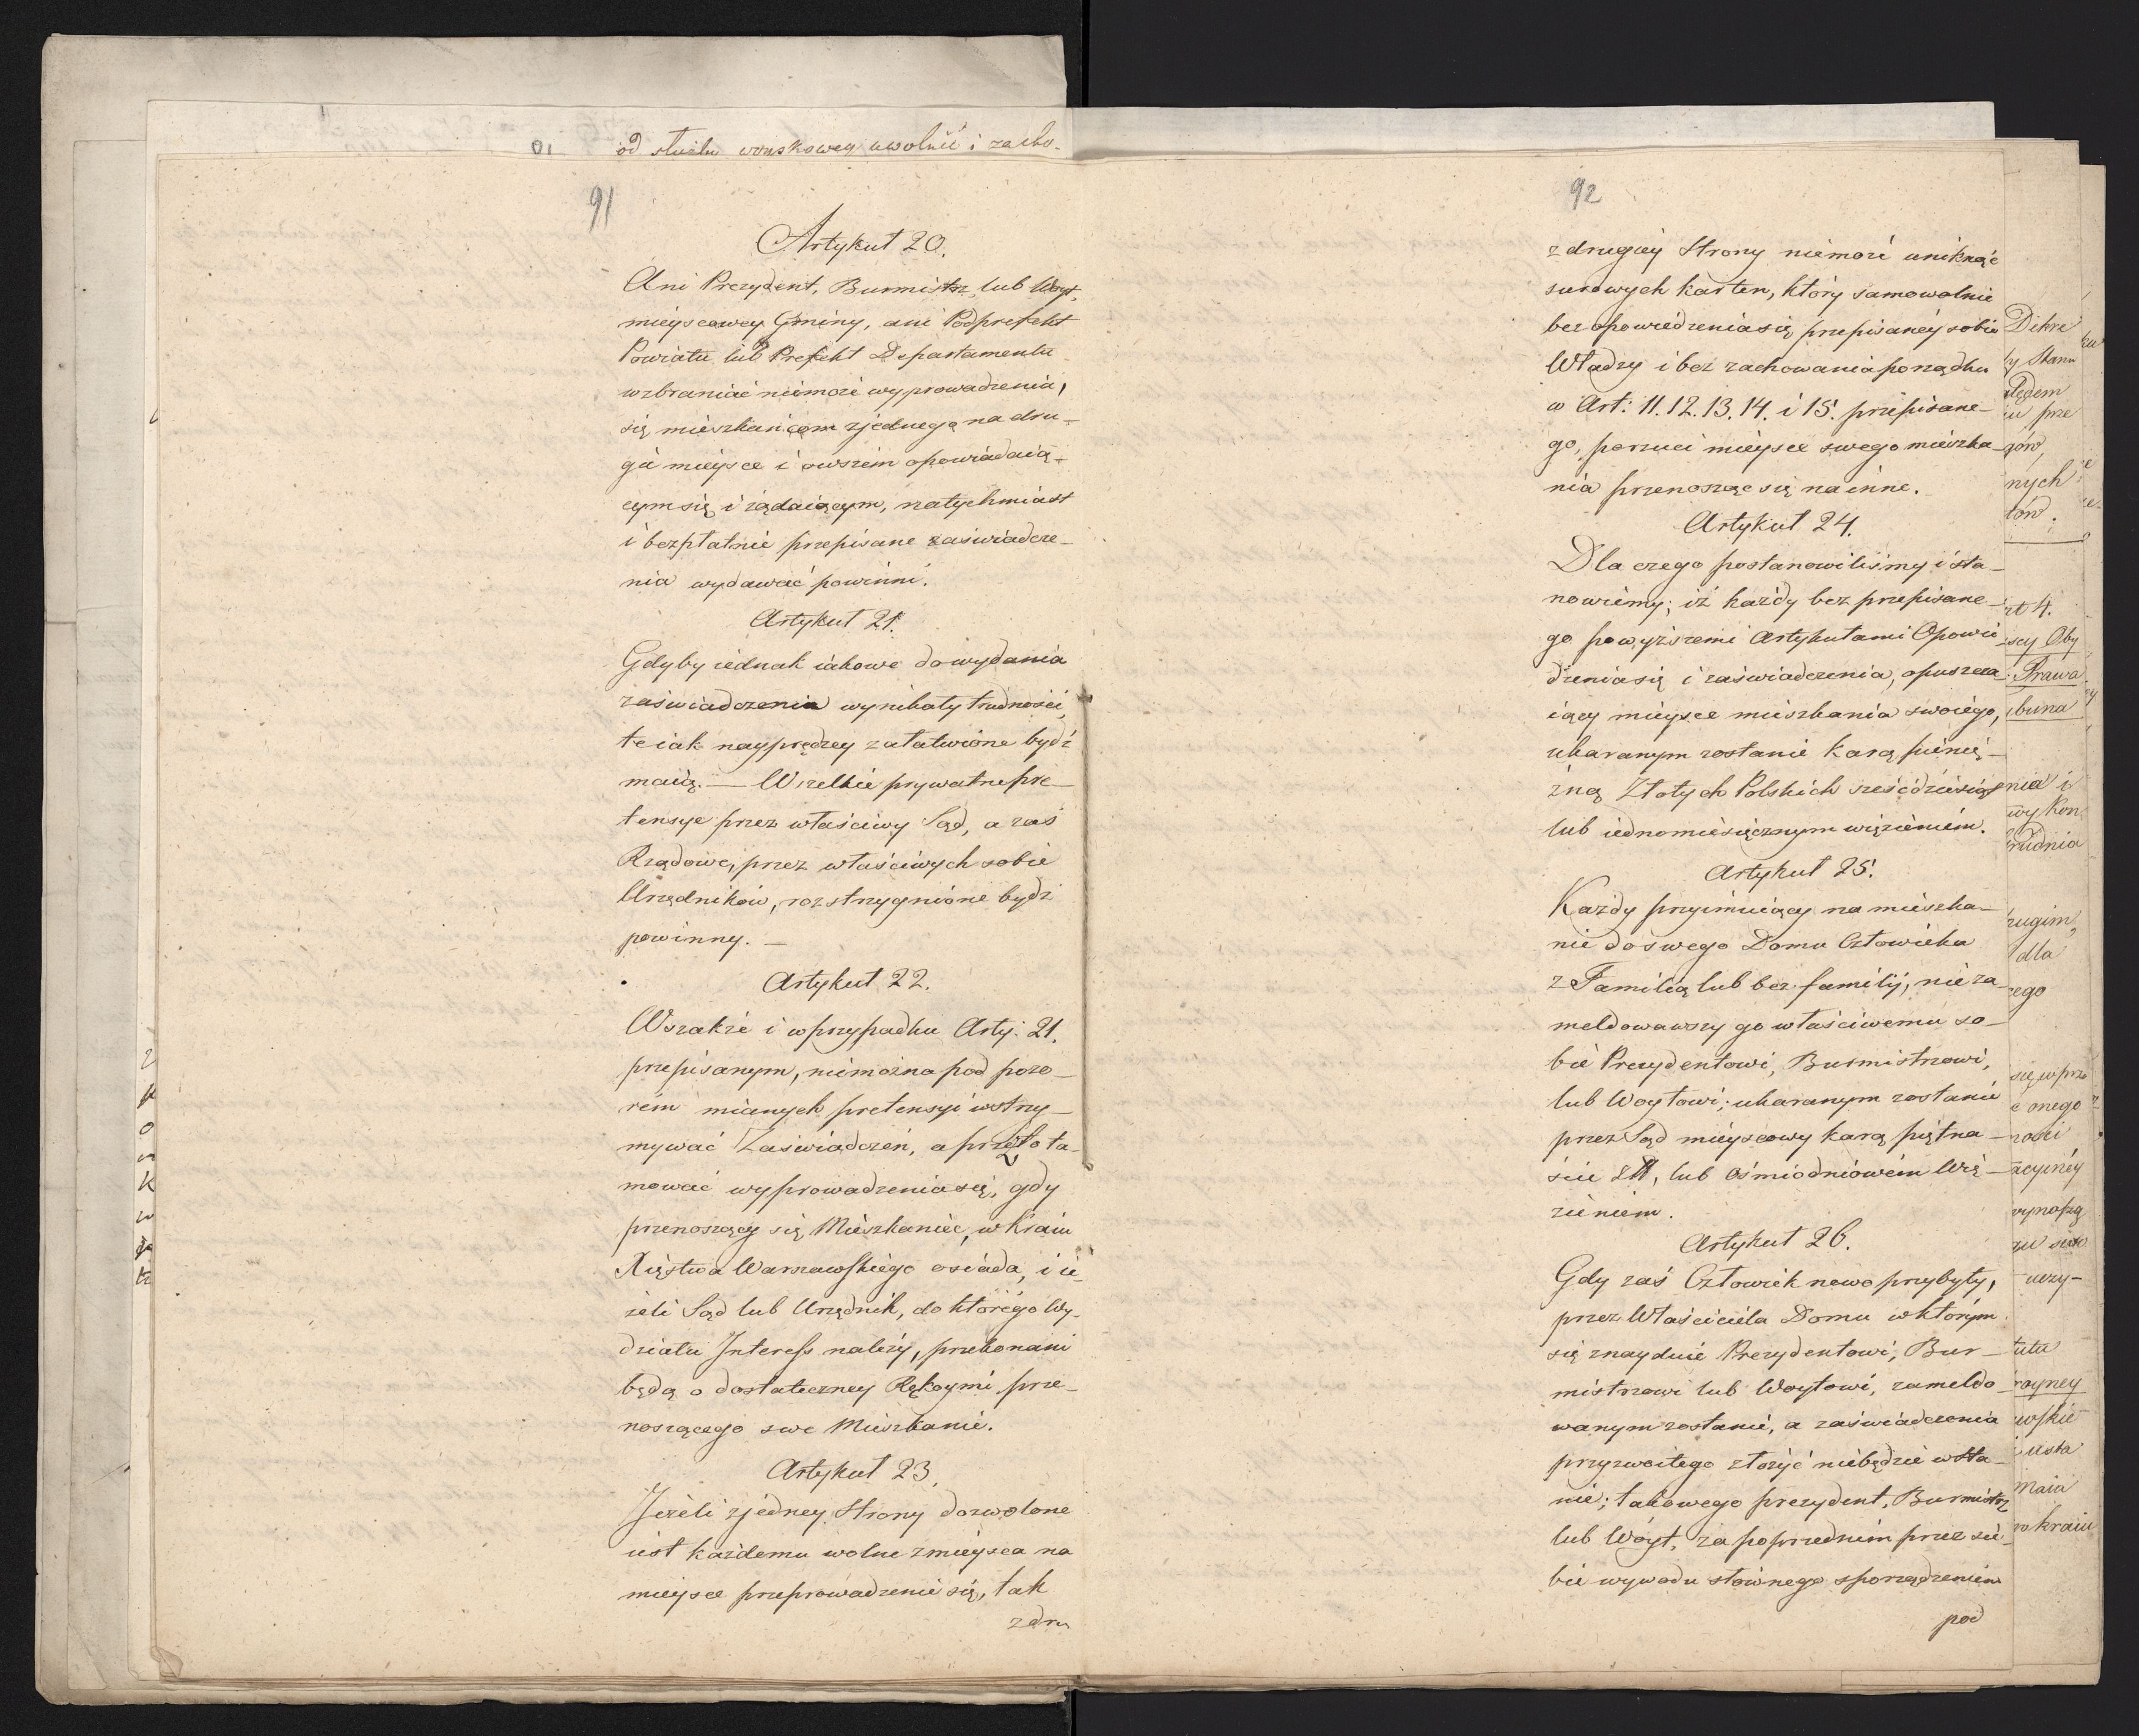 od służby woyskowey uwolnić i zacho-
91
Artykuł 20.
Ani Prezydent, Burmistrz, lub Woyt,
mieyscowey Gminy, ani Podprefekt
Powiatu lub Prefekt Departamentu
wzbraniać niemoże wyprowadzenia,
się mieszkańcom zjednego na dru-
gie mieysce i owszem opowiadaią-
cym się i żądaiącym, natychmiast
i bezpłatnie przepisane zaświadcze-
nia wydawać powinni.
Artykuł 21.
Gdyby iednak iakowe do wydania
zaświadczenia wynikały trudności,
te iak nayprędzey załatwione bydź
maią. — Wszelkie prywatne pre-
tensye przez właściwy Sąd, a zaś
Rządowe, przez właściwych sobie
Urzędników, rozstrzygnione bydź
powinny. —
Artykuł 22.
Wszakże i w przypadku Arty: 21.
przepisanym, niemożna pod pozo-
rem mianych pretensyi wstrzy-
mywać Zaświadczeń, a przeto ta-
mować wyprowadzenia się, gdy
przenoszący się Mieszkaniec, w Kraiu
Xięstwa Warszawskiego osiada, i ie-
żeli Sąd lub Urzędnik, do którego Wy-
działu Interess należy, przekonani
będą o dostateczney Rękoymi prze-
noszącego swe Mieszkanie.
Artykuł 23.
Jeżeli zjedney Strony dozwolone
iest każdemu wolne zmieysca na
mieysce przeprowadzenie się, tak
zdru
92
zdrugiey Strony niemoże uniknąć
surowych kar ten, który samowolnie
bez opowiedzenia się przepisaney sobie
Władzy i bez zachowania porządku
w Art: 11. 12. 13. 14. i 15. przepisane-
go, porzuci mieysce swego mieszka-
nia przenosząc się na inne.
Artykuł 24.
Dla czego postanowiliśmy i sta-
nowiemy; iż każdy bez przepisane-
go powyższemi Artykułami Opowie-
dzenia się i zaświadczenia, opuszcza-
iący mieysce mieszkania swoiego,
ukaranym zostanie karą pienię-
żną Złotych Polskich sześćdziesiąt
lub iednomiesięcznym więzieniem.
Artykuł 25.
Każdy przyimuiący na mieszka-
nie do swego Domu Człowieka
z Familią lub bez familij, nie za-
meldowawszy go właściwemu so-
bie Prezydentowi, Burmistrzowi,
lub Woytowi; ukaranym zostanie
przez Sąd mieyscowy karą piętna-
ście Zł, lub ośmiodniowém Wię-
zieniem.
Artykuł 26.
Gdy zaś Człowiek nowo przybyły,
przez Właściciela Domu w którym
się znayduie Prezydentowi, Bur-
mistrzowi lub Woytowi, zameldo-
wanym zostanie, a zaświadczenia
przyzwoitego złożyć niebędzie w sta-
nie; takowego prezydent, Burmistrz
lub Wóyt, za poprzednim przez sie-
bie wywodu słownego sporządzeniem
pod
nych
rugim,
dla
c onego
Maia
kraiu